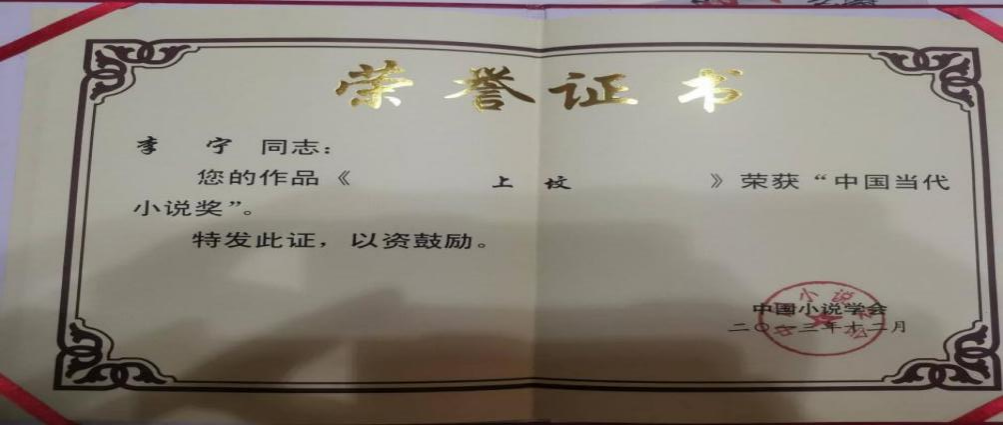 荣誉证书
李 宁 同志：
您的作品《 上 坟 》荣获“中国当代
小说奖”。
特发此证，以资鼓励。
中国小说学会
二〇一三年十二月